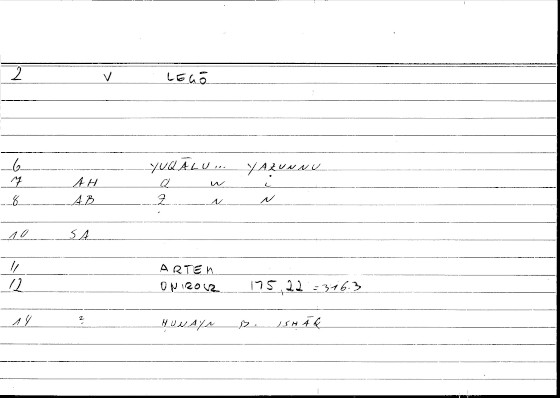 2 V LEGŌ
6 YUQĀLU... YAZUNNU
7 AH Q w i
8 AB Ẓ N N
10 SA
11 ARTEM
12 175,22 = 316.3
14 ? HUNAYN B. ISHĀQ